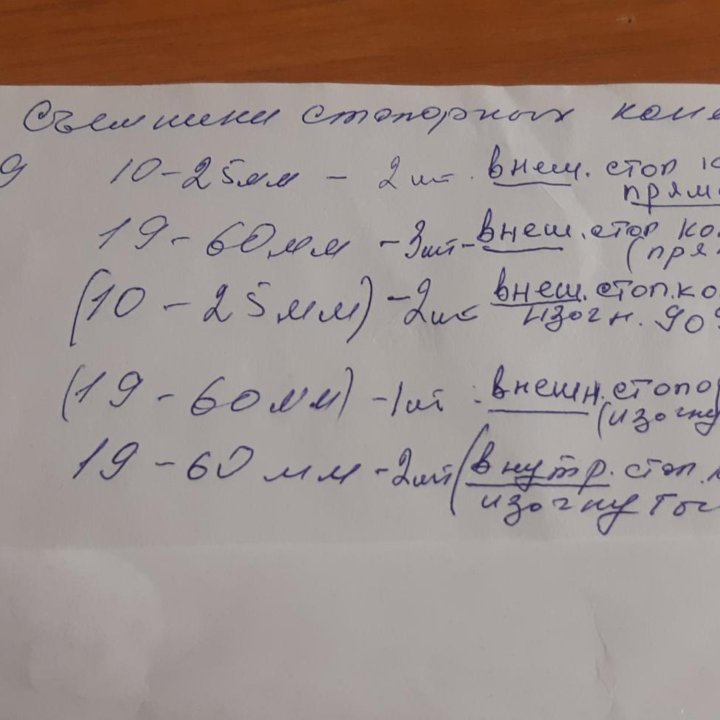 Съемники стопорных коле
9 10-25мм - 2шт. внеш. стоп к
прямо
19-60мм -3шт- внеш. стоп ко
(пря
(10-25мм) -2шт внеш. стоп. ко
изогн. 90°
(19-60мм) -1шт : внешн. стопо
(изогну
19-60мм -2шт (внутр. стоп. к
изогнуты